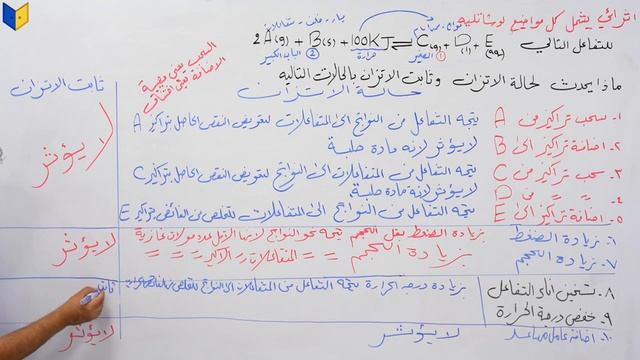 اثرائي يشمل كل مواضيع لوشاتليه
للتفاعل التالي 2A(g) + B(s) + 100KJ ⇌ C(g) + D(l) + E(aq)
حرارة
ماذا يحدث لحالة الاتزان وثابت الاتزان بالحالات التالية
السحب يعني
الاضافة تعني
حالة الاتزان
ثابت الاتزان
١- سحب تراكيز من A يتجه التفاعل من النواتج الى المتفاعلات لتعويض النقص الحاصل بتراكيز A
٢- اضافة تراكيز الى B لا يؤثر لانه مادة صلبة
٣- سحب تراكيز من C يتجه التفاعل من المتفاعلات الى النواتج لتعويض النقص الحاصل بتركيز C
٤- = = من D لا يؤثر لانه مادة
٥- اضافة تراكيز الى E يتجه التفاعل من النواتج الى المتفاعلات للتخلص من الفائض
لا يؤثر
٦- زيادة الضغط بزيادة الضغط يقل الحجم يتجه نحو النواتج لانها اقل عدد مولات غازية
٧- زيادة الحجم بزيادة الحجم = = المتفاعلات = الاكبر = =
لا يؤثر
٨- تسخين اناء التفاعل بزيادة درجة الحرارة يتجه التفاعل من المتفاعلات الى النواتج للتخلص من الفائض
٩- خفض درجة الحرارة
١٠- اضافة عامل مساعد لا يؤثر لا يؤثر